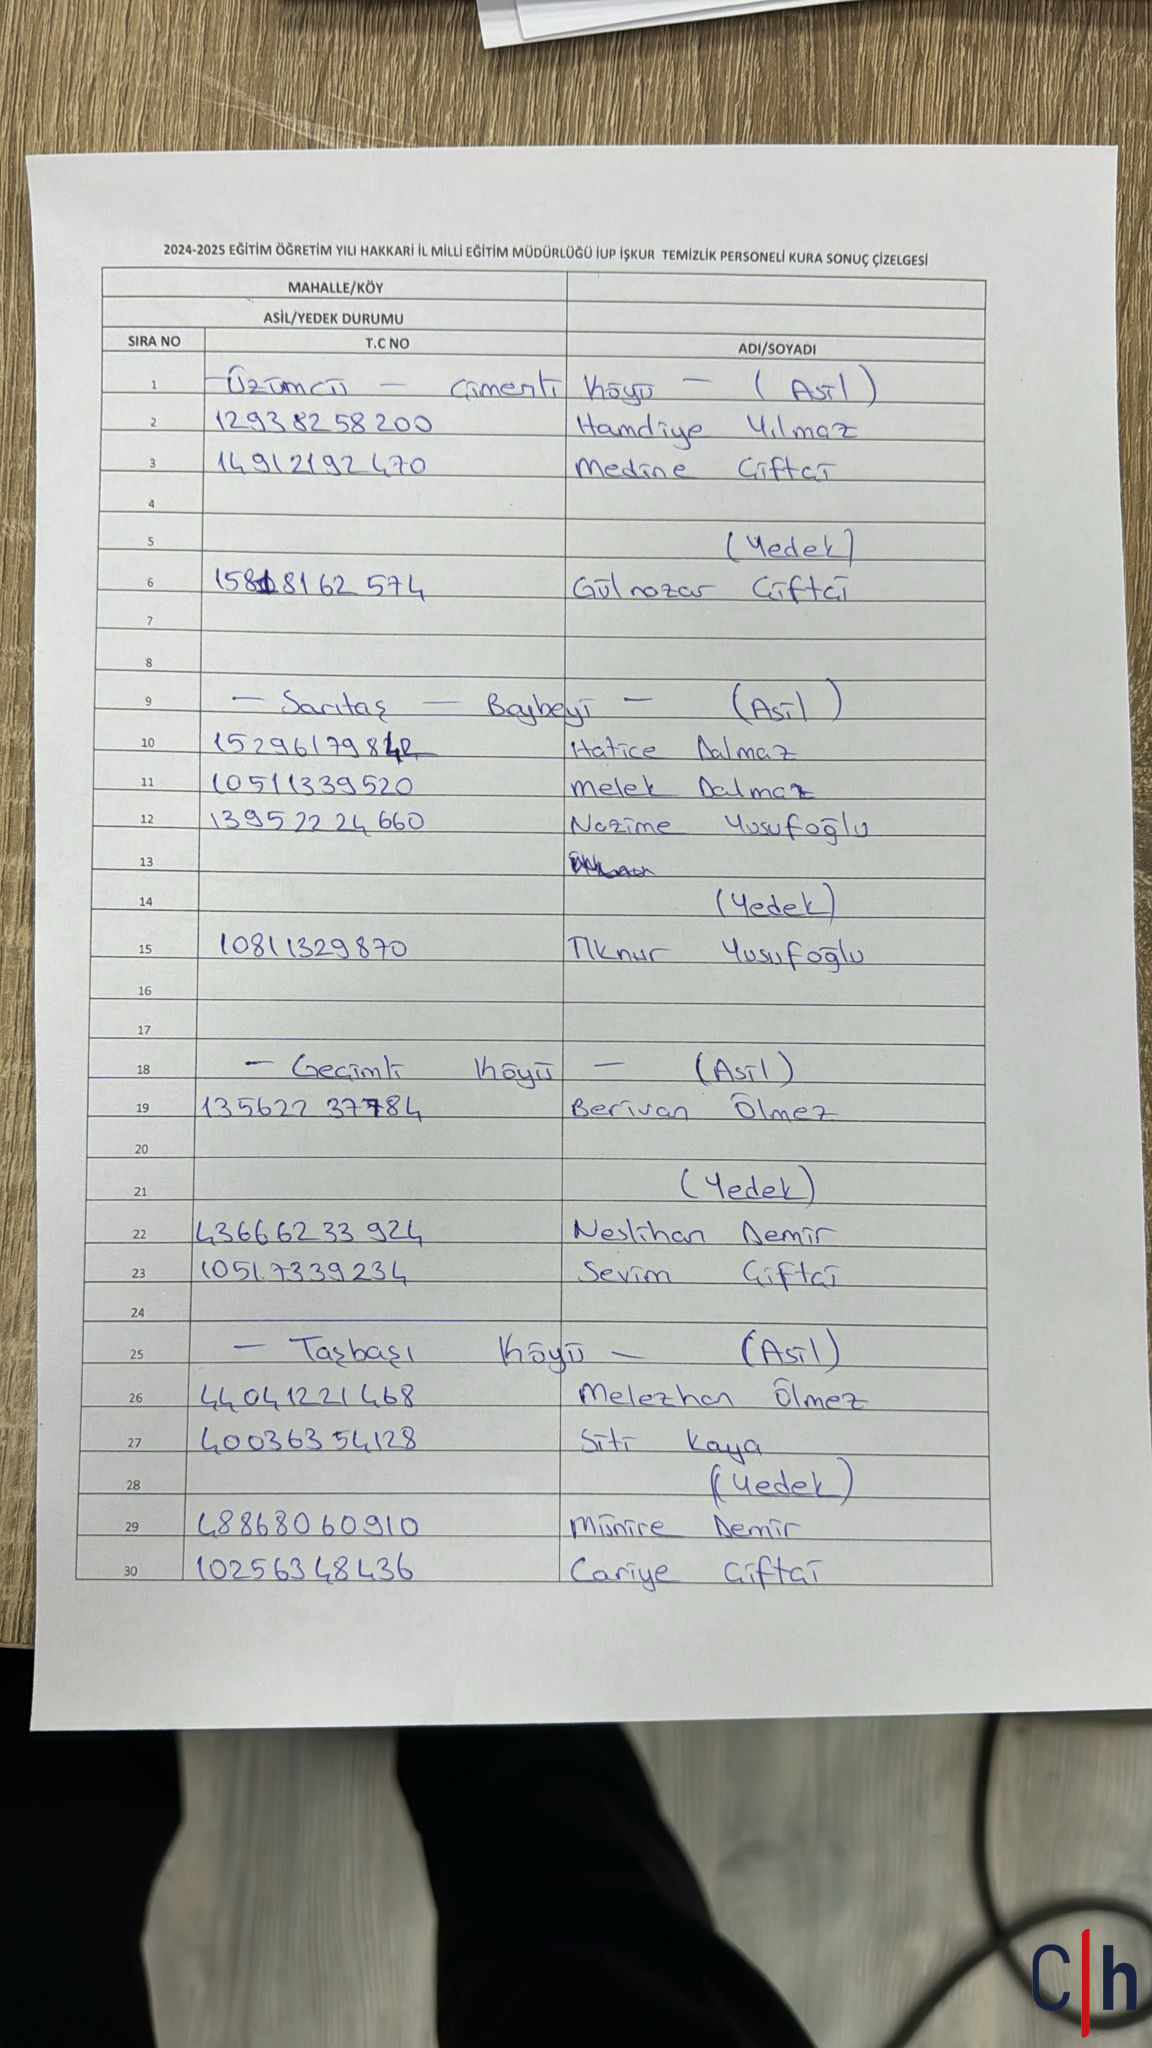 2024-2025 EĞİTİM ÖĞRETİM YILI HAKKARİ İL MİLLİ EĞİTİM MÜDÜRLÜĞÜ İUP İŞKUR TEMİZLİK PERSONELİ KURA SONUÇ ÇİZELGESİ
MAHALLE/KÖY
ASİL/YEDEK DURUMU
SIRA NO T.C NO ADI/SOYADI
1 - Üzümcü - Çimenli Köyü - (Asil)
2 12938258200 Hamdiye Yılmaz
3 14912192470 Medine Çiftçi
4
5 (Yedek)
6 Gülnazar Çiftçi
7
8
9 - Sarıtaş - Baybeyi - (Asil)
10 Hatice Dalmaz
11 10511339520 Melek Dalmaz
12 13952224660 Nazime Yusufoğlu
13
14 (Yedek)
15 10811329870 İlknur Yusufoğlu
16
17
18 - Geçimli Köyü - (Asil)
19 13562237784 Berivan Ölmez
20
21 (Yedek)
22 43666233924 Neslihan Demir
23 10517339234 Sevim Çiftçi
24
25 - Taşbaşı Köyü - (Asil)
26 44041221468 Melezhan Ölmez
27 40036354128 Siti Kaya
28 (Yedek)
29 48868060910 Münire Demir
30 10256348436 Cariye Çiftçi
C|h